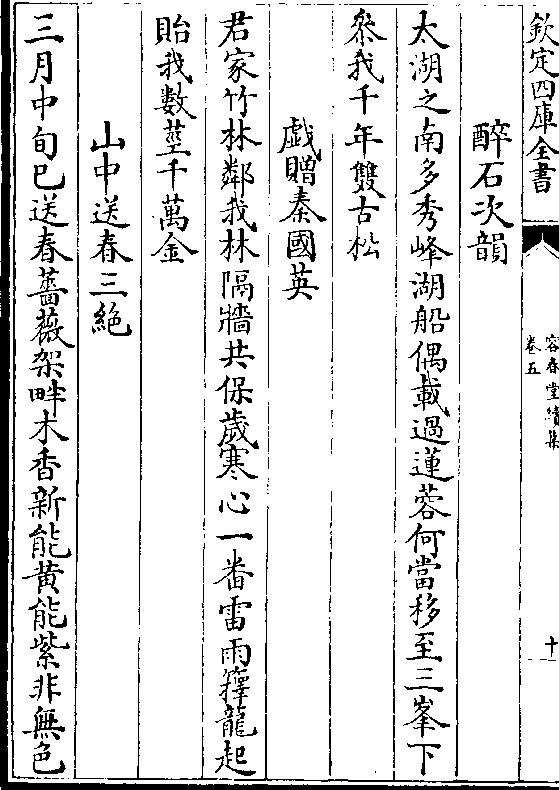 欽定四庫全書
容春堂續集
卷五
十
醉石次韻
太湖之南多秀峰湖船偶載過蓮蓉何當移至三峯下
叅我千年雙古松
戲贈秦國英
君家竹林鄰我林隔牆共保歲寒心一番雷雨籜龍起
貽我數莖千萬金
山中送春三絶
三月中旬巳送春薔薇架畔木香新能黄能紫非無色